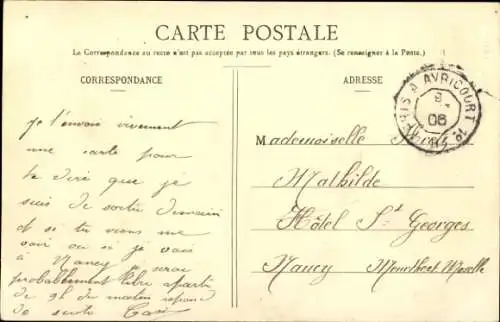 CARTE POSTALE
La Correspondance au recto n'est pas acceptée par tous les pays étrangers. (Se renseigner à la Poste.)
CORRESPONDANCE
Je t'envoie vivement
une carte pour
te dire que je
suis de sortie demain
et si tu viens me
voir ou si je vais
à Nancy je serai
probablement libre à partir
de 9h du matin
de suite
ADRESSE
Mademoiselle
Mathilde
Hôtel St Georges
Nancy Meurthe et Moselle
PARIS A AVRICOURT 1º
9
08